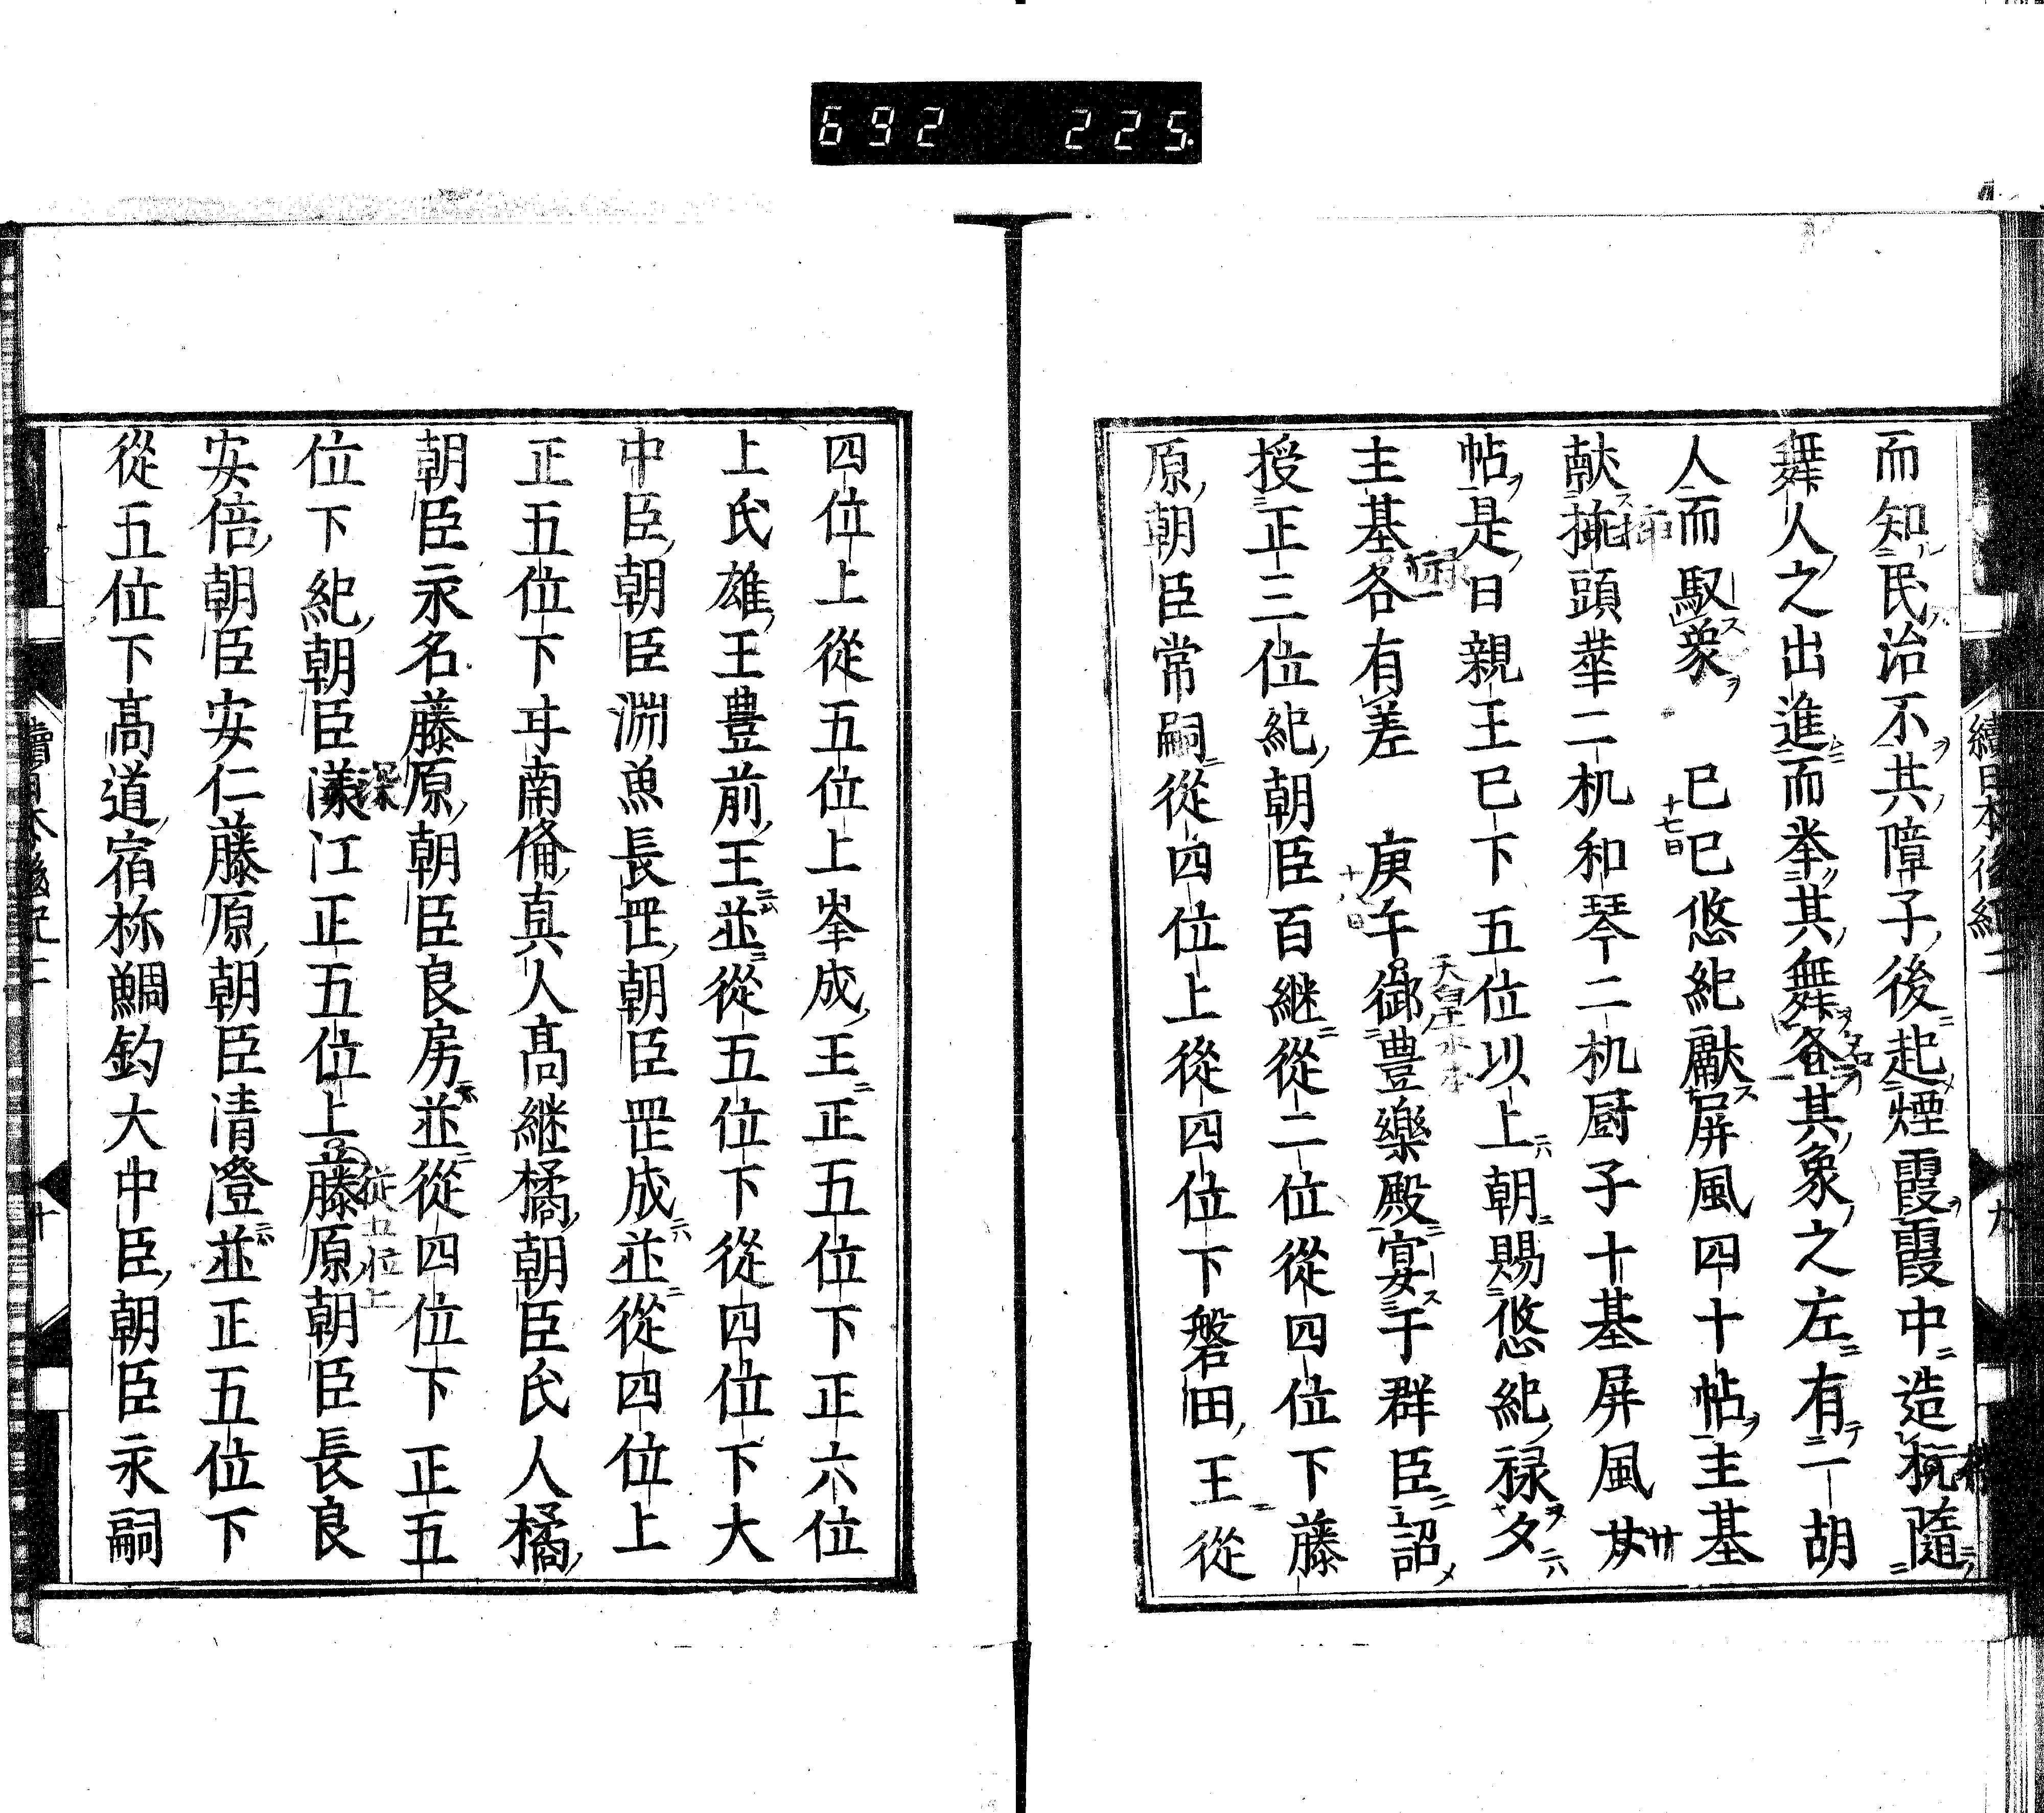 692 225
續日本後紀二
九
而知民治不其障子後起煙霞霞中造𣏐隨
舞人之出進而挙其舞各其象之左有二胡
人而馭衆 己巳悠紀獻屏風四十帖主基
献插頭華二机和琴二机厨子十基屏風廿
帖是日親王已下五位以上朝賜悠紀禄夕
主基各有差 庚午御豊樂殿宴于群臣詔
授正三位紀朝臣百継從二位從四位下藤
原朝臣常嗣從四位上從四位下磐田王從
十七日
十八日
禄
四位上從五位上峯成王正五位下正六位
上氏雄王豊前王並從五位下從四位下大
中臣朝臣淵魚長罡朝臣罡成並從四位上
正五位下弁南備真人高継橘朝臣氏人橘
朝臣永名藤原朝臣良房並從四位下正五
位下紀朝臣漾江正五位上藤原朝臣長良
安倍朝臣安仁藤原朝臣清澄並正五位下
從五位下高道宿祢鯛釣大中臣朝臣永嗣
深
從五位上
十